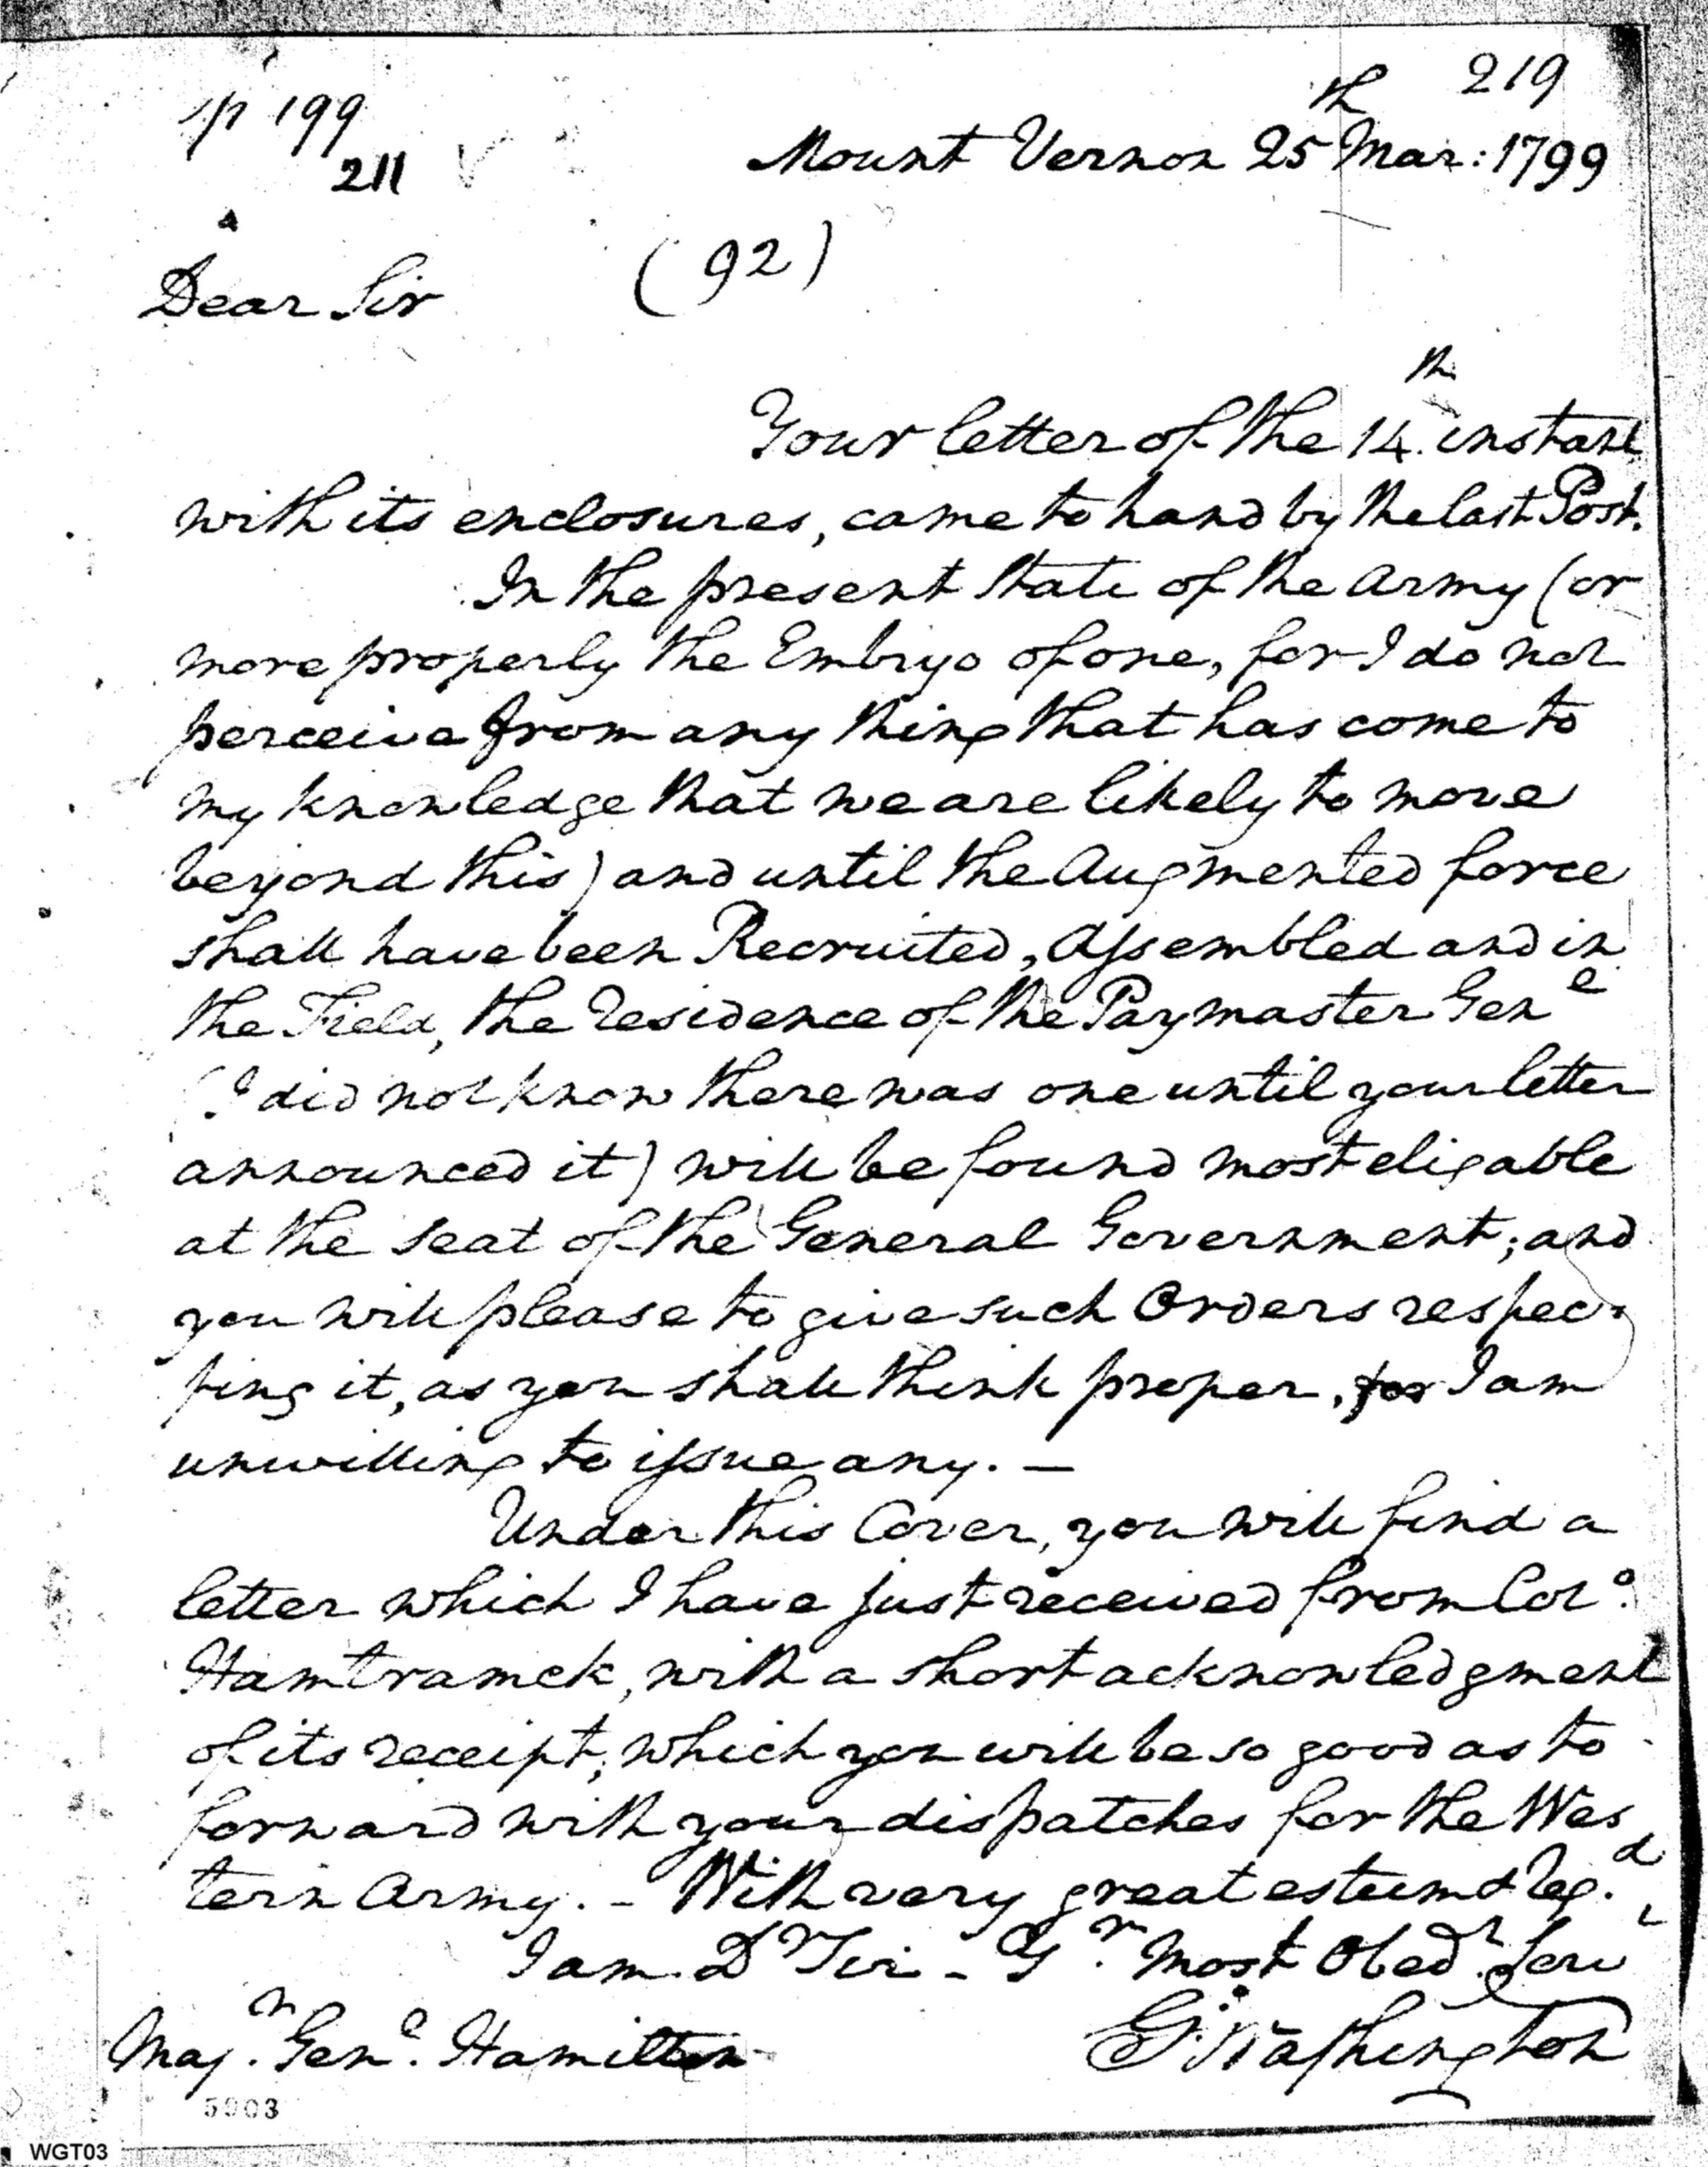 219
p 199
211
Mount Vernon 25th Mar: 1799
(92)
Dear Sir
Your letter of the 14th instant
with its enclosures, came to hand by the last Post.
In the present state of the Army (or
more properly the Embryo of one, for I do not
perceive from any thing that has come to
my knowledge that we are likely to move
beyond this) and until the Augmented force
shall have been Recruited, Assembled and in
the Field, the residence of the Paymaster Genl
(I did not know there was one until your letter
announced it) will be found most eligable
at the seat of the General Government; and
you will please to give such Orders respec-
ting it, as you shall think proper, for I am
unwilling to issue any. —
Under this Cover, you will find a
letter which I have just received from Colo.
Hamtramck, with a short acknowledgment
of its receipt; which you will be so good as to
forward with your dispatches for the Wes
tern Army. - With very great esteem & Regd.
I am Dr Sir - Yr. Most Obedt. Servt
Go: Washington
Majr. Genl. Hamilton
5903
WGT03